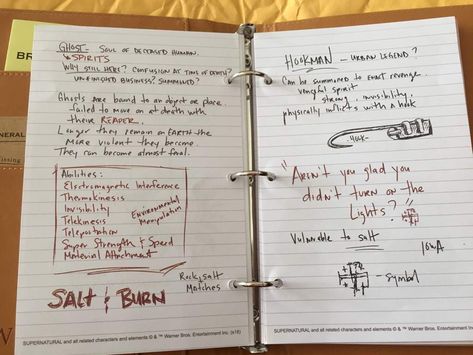 BR
GENERAL
issing
W
GHOST- SOUL OF DECEASED HUMAN.
↳SPIRITS
WHY STILL HERE? CONFUSION AT TIME OF DEATH?
UNFINISHED BUSINESS? SUMMONED?
Ghosts are bound to an object or place.
failed to move on at death with
their REAPER.
Longer they remain on EARTH the
more violent they become.
They can become almost feral.
Abilities:
Electromagnetic Interference
Thermokinesis
Invisibility
Telekinesis
Teleportation
Super Strength & Speed
Material Attachment
Environmental
Manipulation
SALT & BURN
Rock salt
Matches
SUPERNATURAL and all related characters and elements © & ™ Warner Bros. Entertainment Inc. (s18)
HOOKMAN - URBAN LEGEND?
Can be summoned to exact revenge.
vengful spirit
strong, invisibility,
physically inflicts with a hook
HOOK
"Aren't you glad you
didn't turn on the
Lights?"
Vulnerable to salt
IOWA
- symbol
SUPERNATURAL and all related characters and elements © & ™ Warner Bros. Entertainment Inc. (s18)